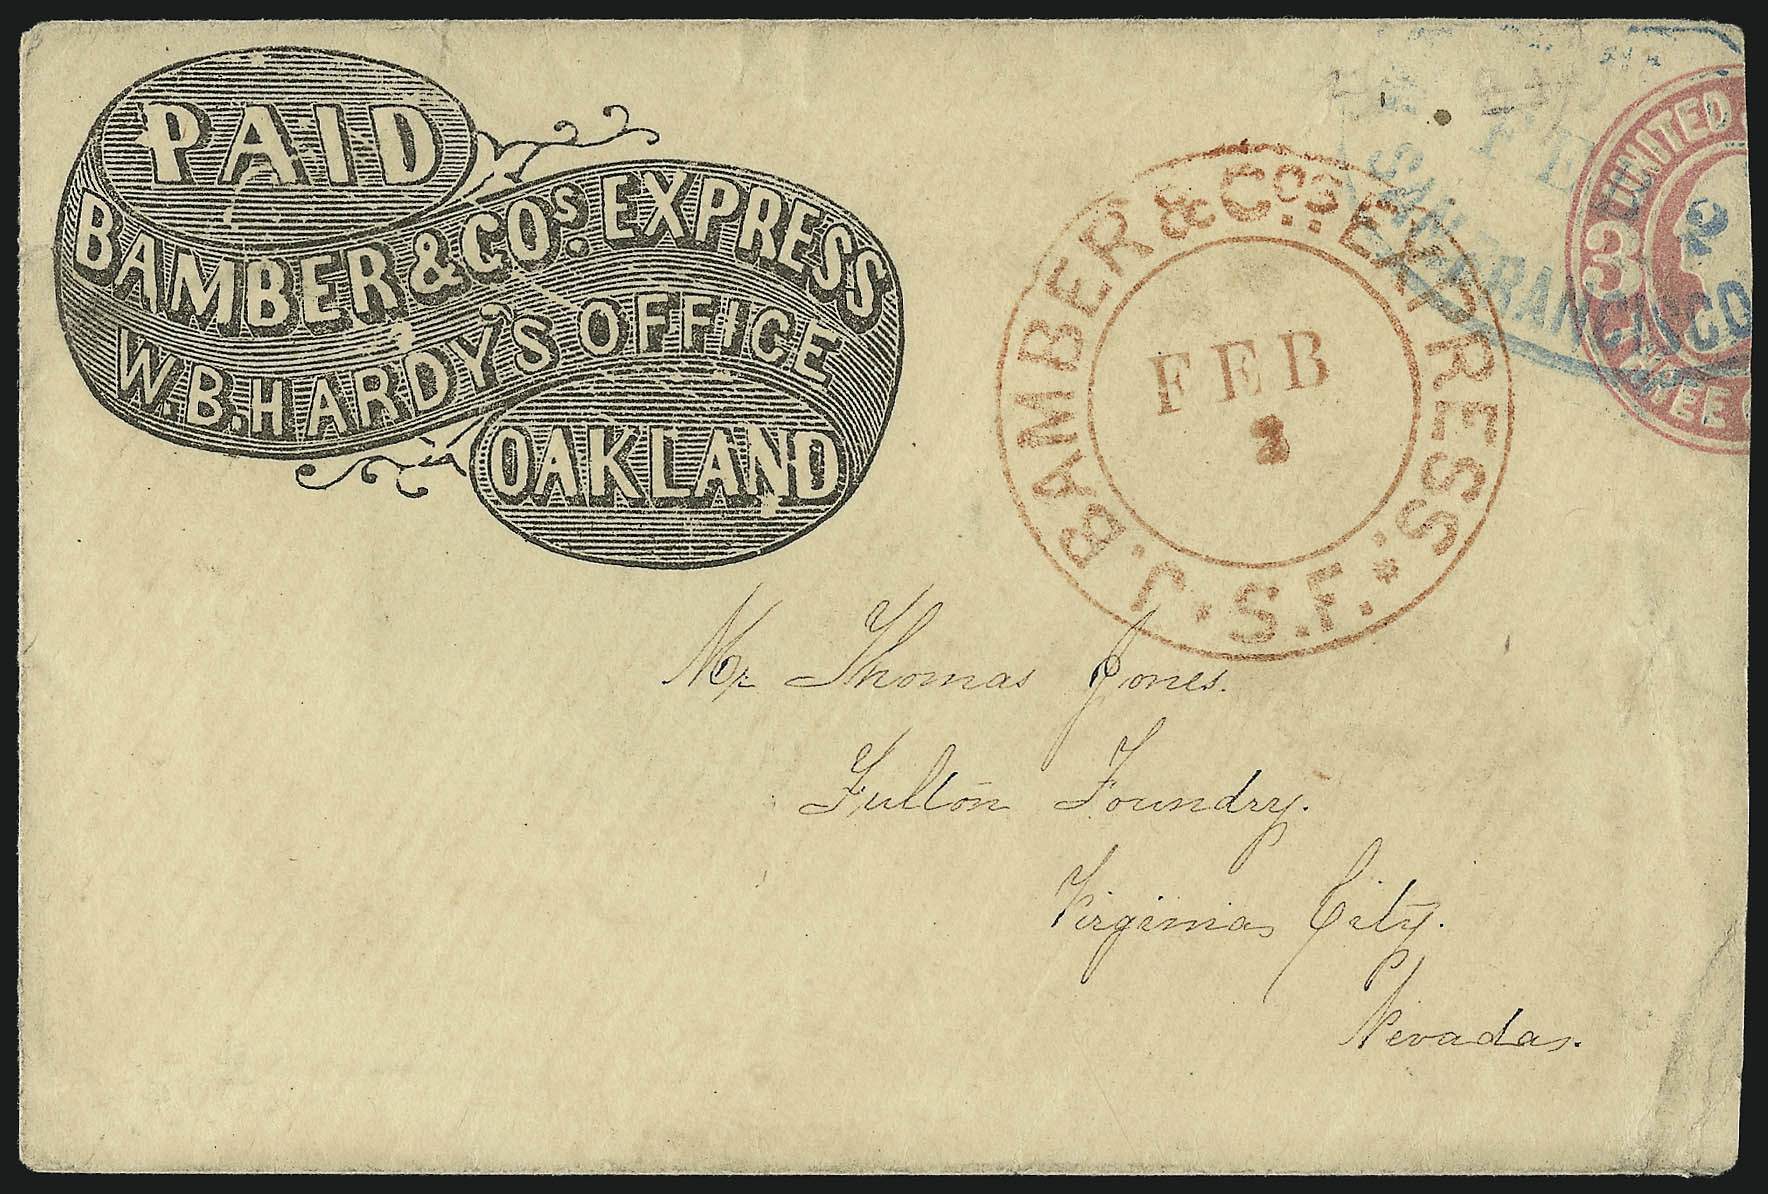 PAID
BAMBER & COs. EXPRESS
W.B. HARDY'S OFFICE
OAKLAND
J. BAMBER & Cos. EXPRESS.
FEB
S.F.
FE
2
SAN FRANCISCO
UNITED
3
THREE C
Mr Thomas Jones.
Fulton Foundry.
Virginia City.
Nevada.